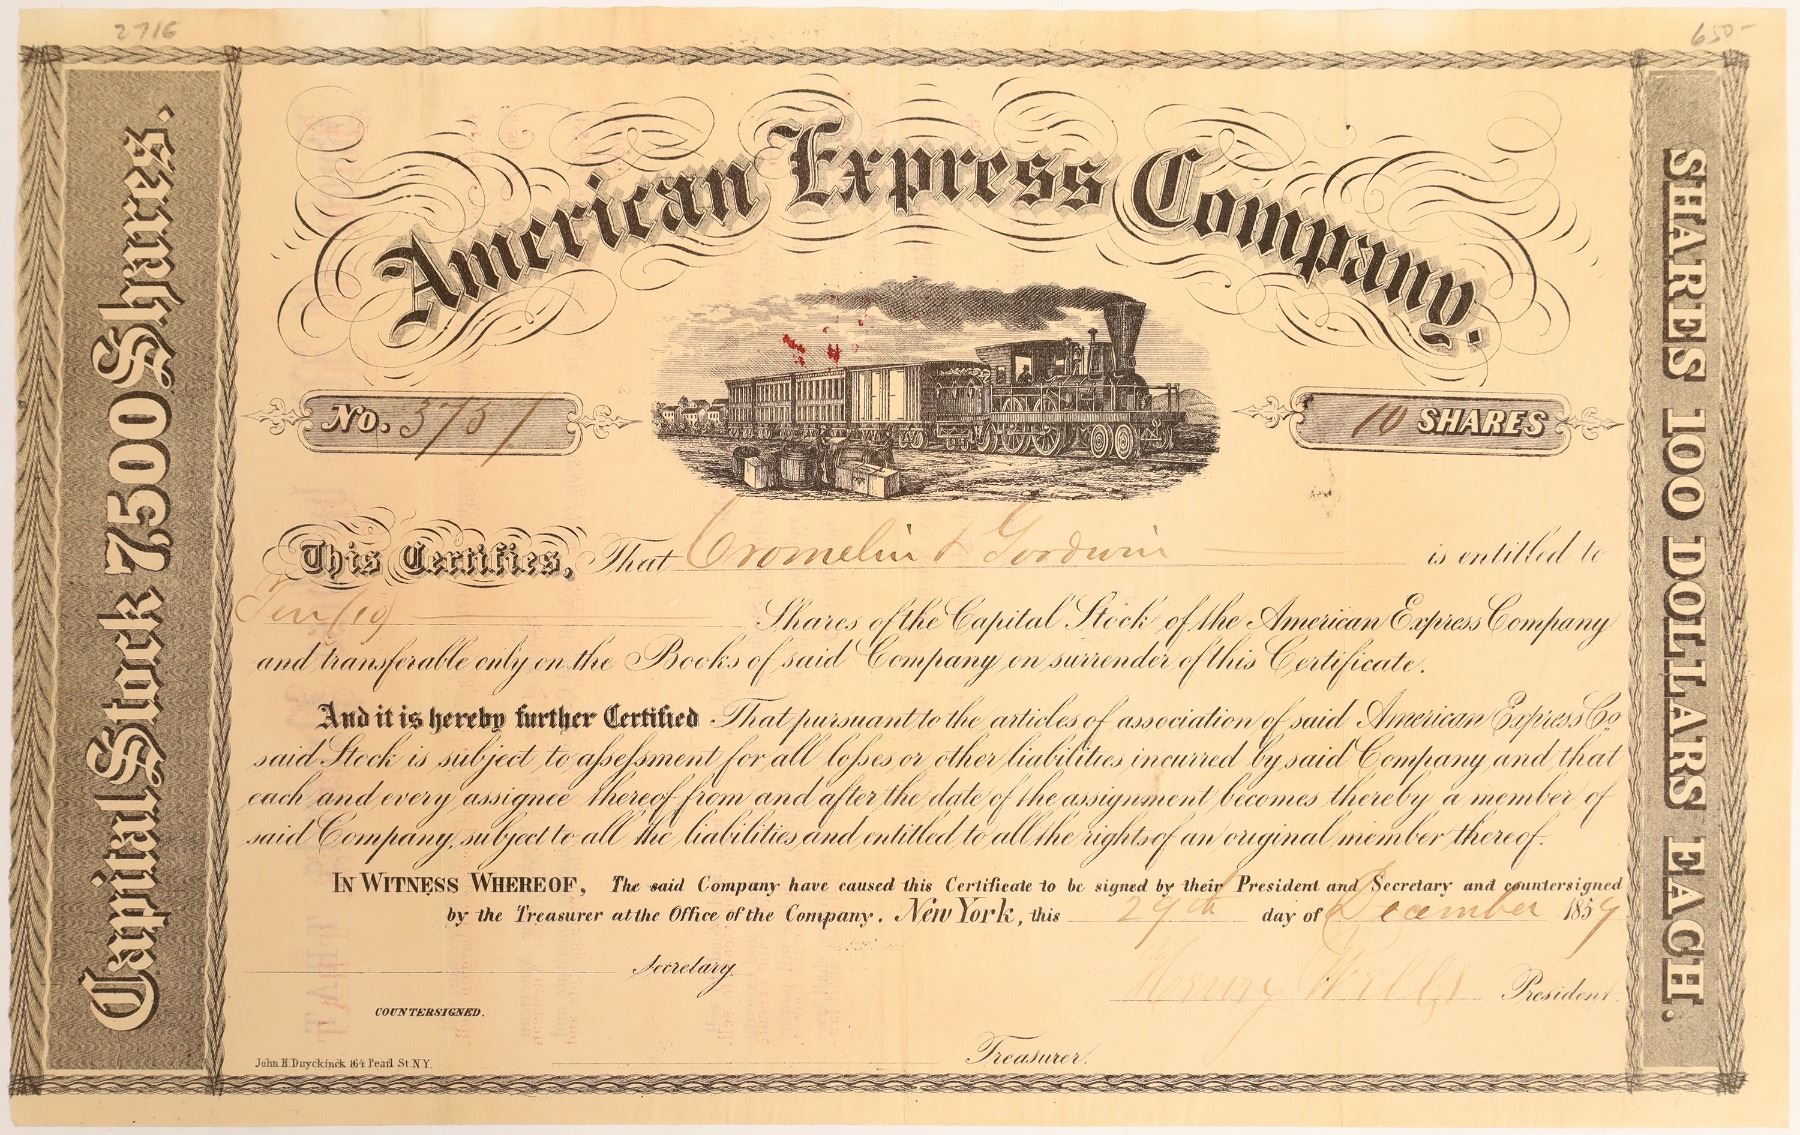 2716
650-
Capital Stock 7,500 Shares.
SHARES 100 DOLLARS EACH.
American Express Company.
No. 3757
10 SHARES
This Certifies, That Cromelin & Gordwin is entitled to
Ten (10) Shares of the Capital Stock of the American Express Company
and transferable only on the Books of said Company on surrender of this Certificate.
And it is hereby further Certified That pursuant to the articles of association of said American Express Co.
said Stock is subject to assessment for all losses or other liabilities incurred by said Company and that
each and every assignee thereof from and after the date of the assignment becomes thereby a member of
said Company, subject to all the liabilities and entitled to all the rights of an original member thereof.
IN WITNESS WHEREOF, The said Company have caused this Certificate to be signed by their President and Secretary and countersigned
by the Treasurer at the Office of the Company. New York, this 29th day of December 1859
Secretary
Henry Wells President.
COUNTERSIGNED.
John H. Duyckinck 164 Pearl St. N.Y.
Treasurer.